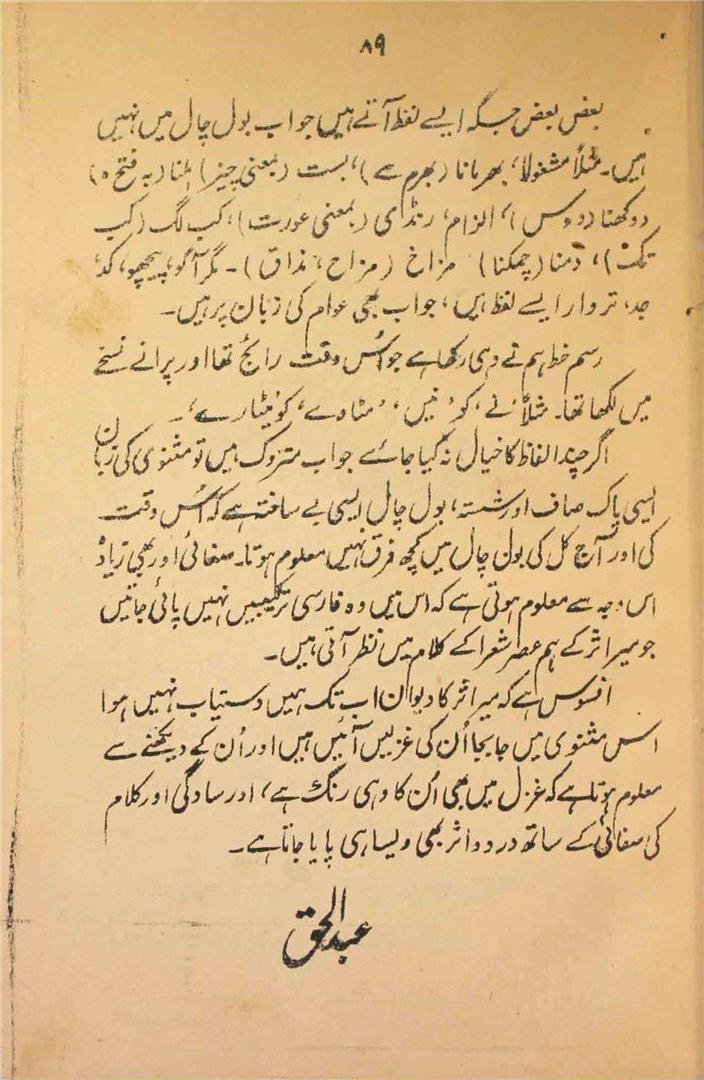 ۸۹
بعض بعض جگہ ایسے لفظ آتے ہیں جو اب بول چال میں نہیں
ہیں۔ مثلاً مشغولا، بھرمانا (بھرم سے)، بست (بمعنی چیز) ہلنا (بہ فتح ہ)
دوکھنا (دوس)، الزام، رنڈی (بمعنی عورت)، کب لگ (کب
تک)، دمنا (چمکنا) مزاخ (مزاح، مذاق)۔ مگر آگو، پیچھو، کد،
جد، تروار ایسے لفظ ہیں، جو اب بھی عوام کی زبان پر ہیں۔
رسم خط ہم نے وہی رکھا ہے جو اُس وقت رائج تھا اور پرانے نسخے
میں لکھا تھا۔ مثلاً نے، کو، نیں، مٹاوے، کو مٹارے،۔
اگر چند الفاظ کا خیال نہ کیا جائے جو اب متروک ہیں تو مثنوی کی زبان
ایسی پاک صاف اور شستہ، بول چال ایسی بے ساختہ ہے کہ اُس وقت
کی اور آج کل کی بول چال میں کچھ فرق نہیں معلوم ہوتا۔ صفائی اور بھی زیادہ
اس وجہ سے معلوم ہوتی ہے کہ اس میں وہ فارسی ترکیبیں نہیں پائی جاتیں
جو میر اثر کے ہم عصر شعرا کے کلام میں نظر آتی ہیں۔
افسوس ہے کہ میر اثر کا دیوان اب تک ہمیں دستیاب نہیں ہوا
اس مثنوی میں جابجا اُن کی غزلیں آئیں ہیں اور اُن کے دیکھنے سے
معلوم ہوتا ہے کہ غزل میں بھی اُن کا وہی رنگ ہے، اور سادگی اور کلام
کی صفائی کے ساتھ درد و اثر بھی ویسا ہی پایا جاتا ہے۔
عبدالحق